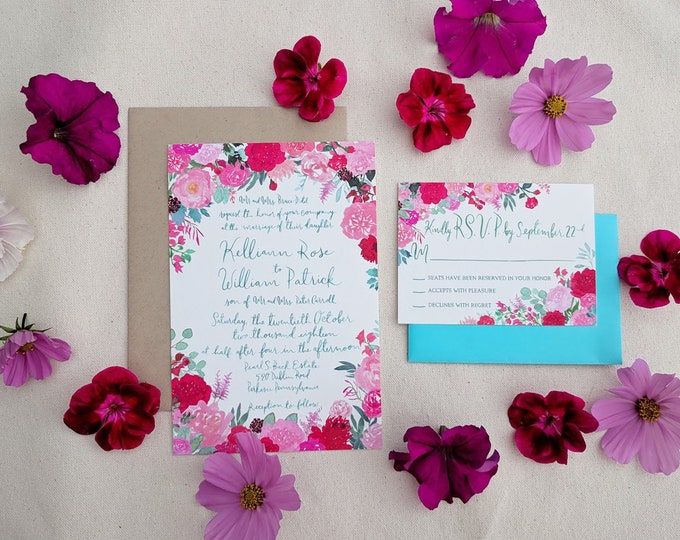 Mr and Mrs Bruce
request the honor of your company
at the marriage of their daughter
Kelliann Rose
to
William Patrick
son of Mr and Mrs Peter Carroll
Saturday, the twentieth October
two thousand eighteen
at half after four in the afternoon
Pearl S. Buck Estate
Dublin Road
Perkasie Pennsylvania
Reception to follow
Kindly R.S.V.P by September 22nd
M
SEATS HAVE BEEN RESERVED IN YOUR HONOR
ACCEPTS WITH PLEASURE
DECLINES WITH REGRET